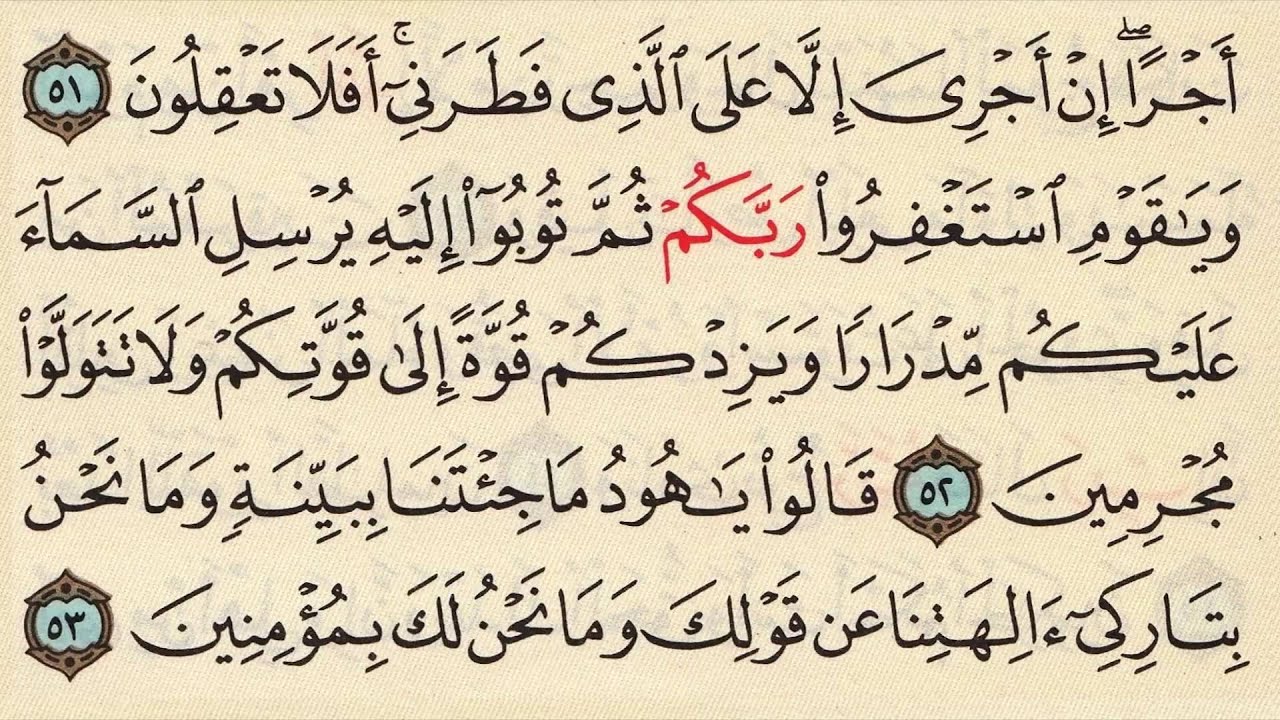 أَجْرًا ۖ إِنْ أَجْرِىَ إِلَّا عَلَى ٱلَّذِى فَطَرَنِىٓ ۚ أَفَلَا تَعْقِلُونَ ٥١
وَيَٰقَوْمِ ٱسْتَغْفِرُوا۟ رَبَّكُمْ ثُمَّ تُوبُوٓا۟ إِلَيْهِ يُرْسِلِ ٱلسَّمَآءَ
عَلَيْكُم مِّدْرَارًا وَيَزِدْكُمْ قُوَّةً إِلَىٰ قُوَّتِكُمْ وَلَا تَتَوَلَّوْا۟
مُجْرِمِينَ ٥٢ قَالُوا۟ يَٰهُودُ مَا جِئْتَنَا بِبَيِّنَةٍ وَمَا نَحْنُ
بِتَارِكِىٓ ءَالِهَتِنَا عَن قَوْلِكَ وَمَا نَحْنُ لَكَ بِمُؤْمِنِينَ ٥٣